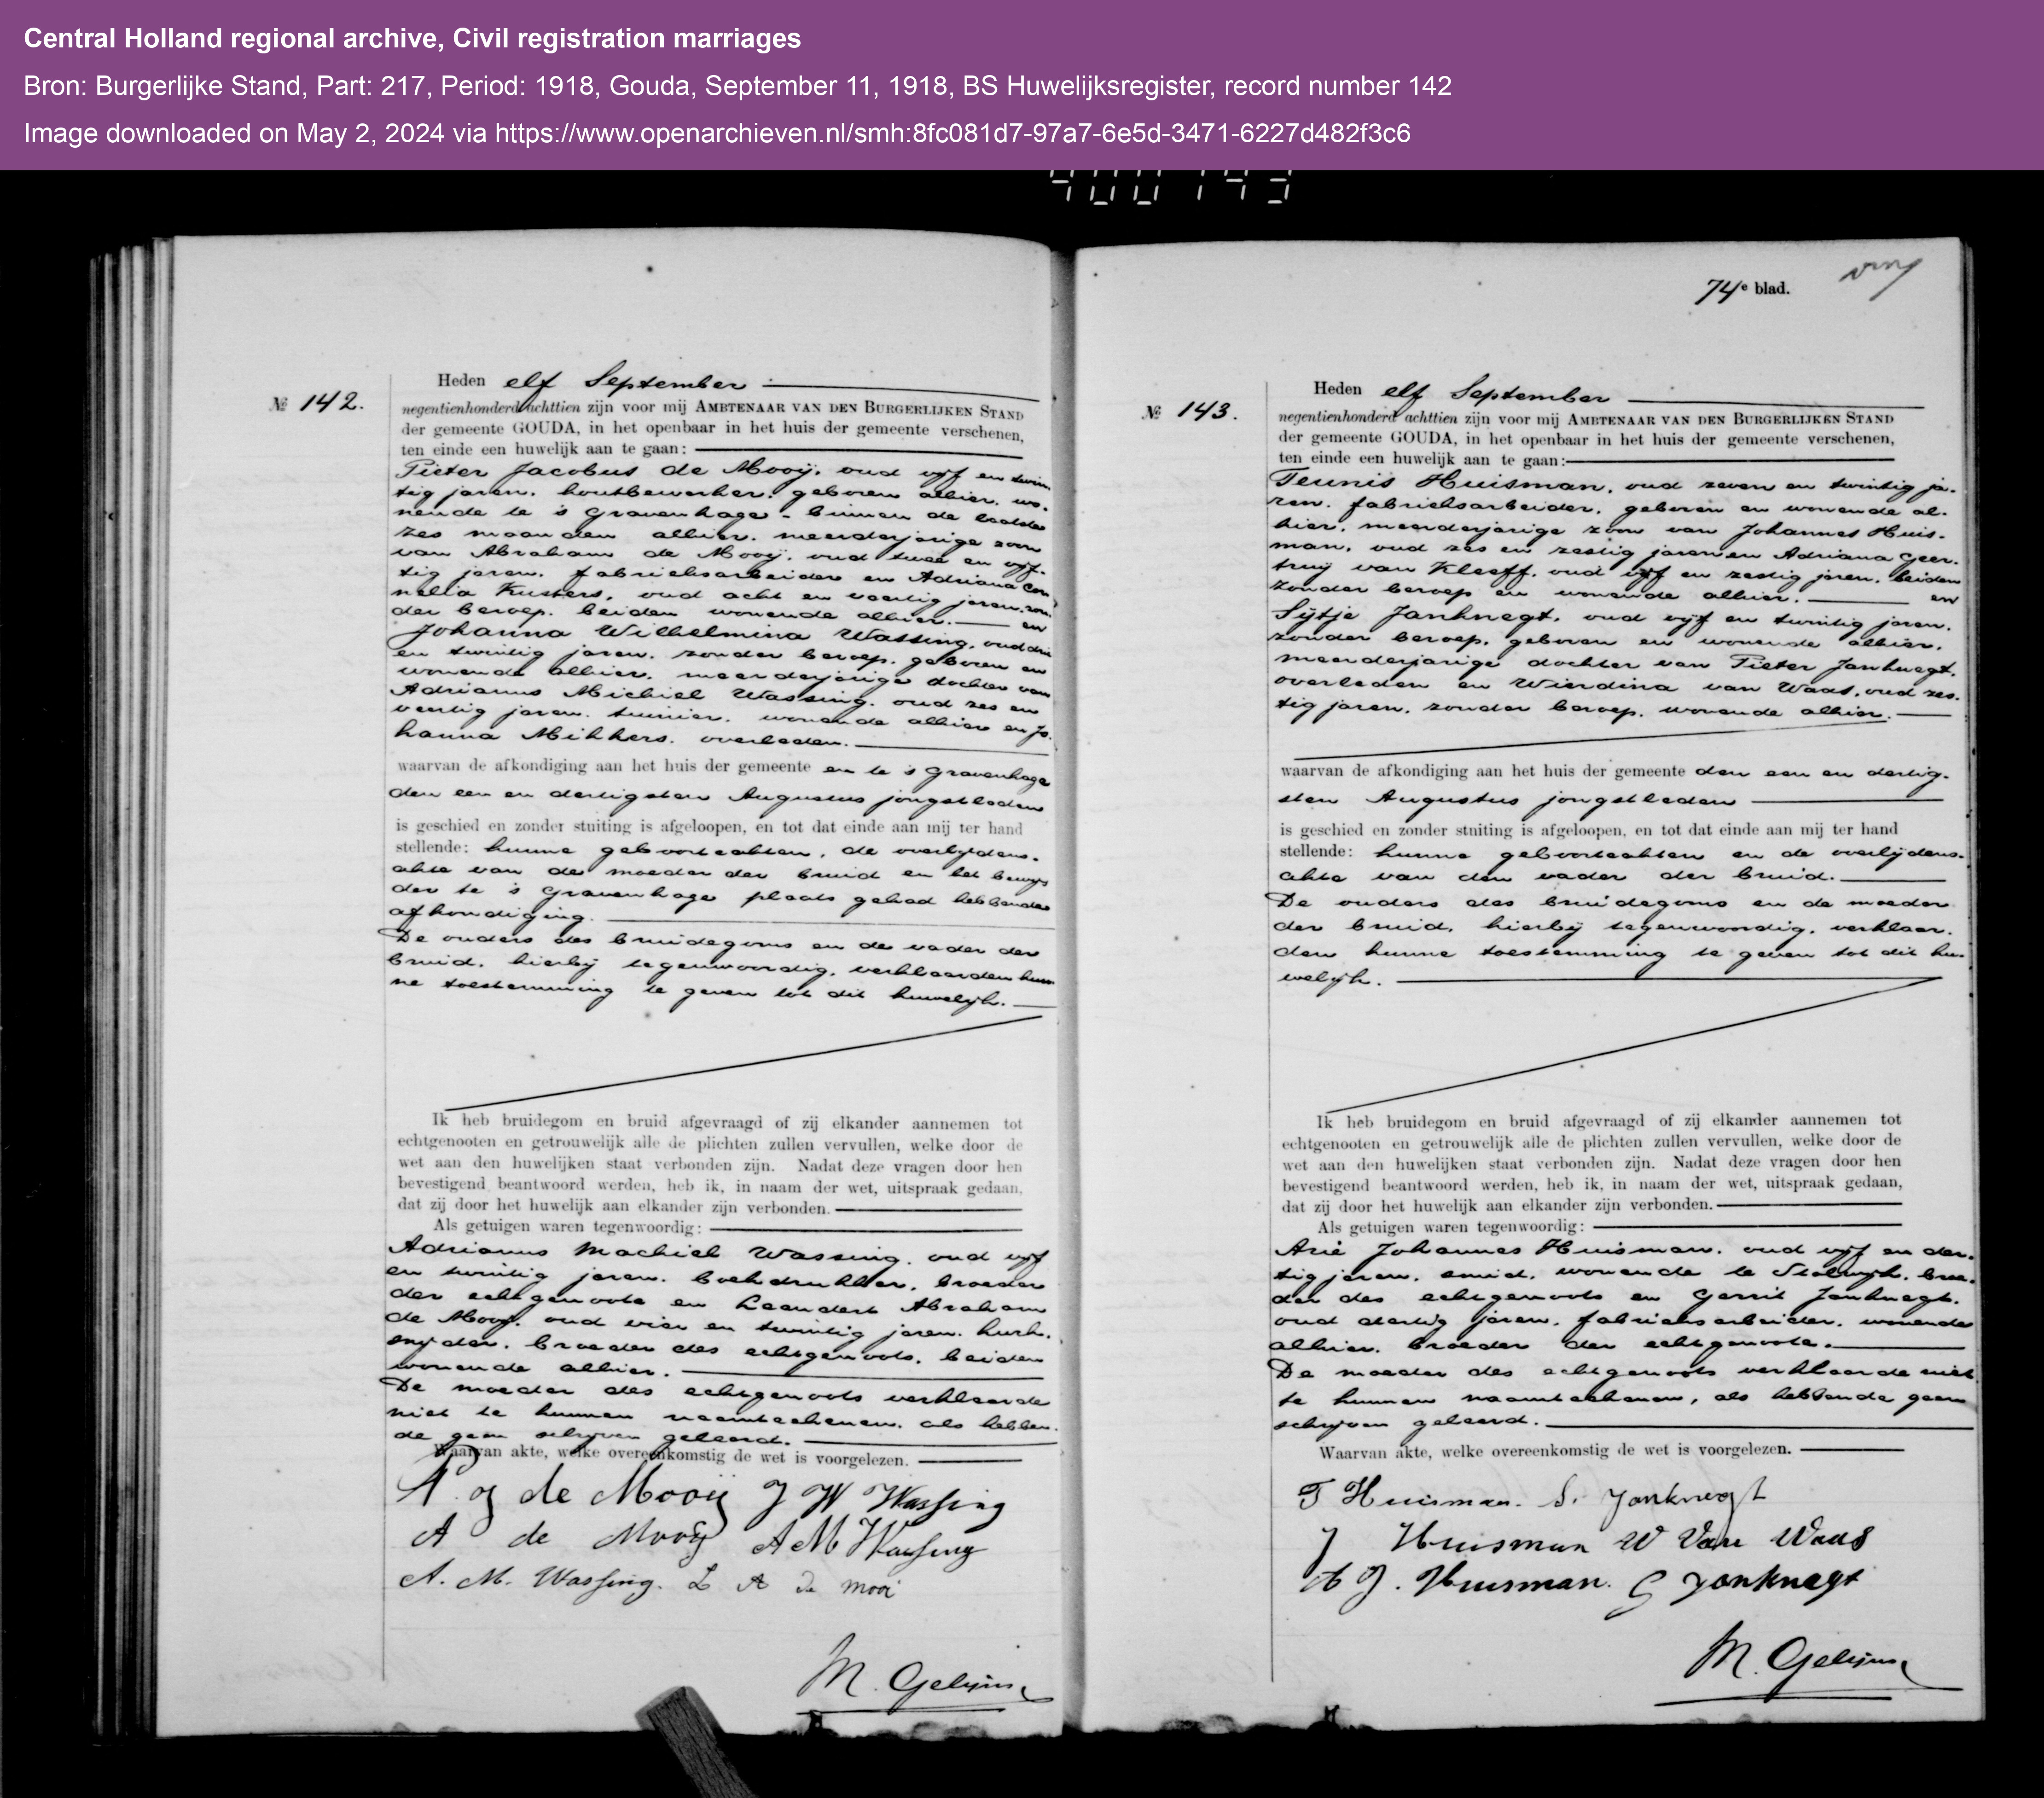 Central Holland regional archive, Civil registration marriages
Bron: Burgerlijke Stand, Part: 217, Period: 1918, Gouda, September 11, 1918, BS Huwelijksregister, record number 142
Image downloaded on May 2, 2024 via https://www.openarchieven.nl/smh:8fc081d7-97a7-6e5d-3471-6227d482f3c6
№ 142.
Heden elf September
negentienhonderd achttien zijn voor mij AMBTENAAR VAN DEN BURGERLIJKEN STAND
der gemeente GOUDA, in het openbaar in het huis der gemeente verschenen,
ten einde een huwelijk aan te gaan:
Pieter Jacobus de Mooij, oud vijf en twin-
tig jaren, houtbewerker, geboren alhier, wo-
nende te 's Gravenhage - binnen de laatste
zes maanden alhier, meerderjarige zoon
van Abraham de Mooij, oud twee en vijf-
tig jaren, fabrieksarbeider en Adriana Cor-
nelia Kusters, oud acht en veertig jaren, zon-
der beroep, beiden wonende alhier. en
Johanna Wilhelmina Wassing, oud drie
en twintig jaren, zonder beroep, geboren en
wonende alhier, meerderjarige dochter van
Adrianus Michiel Wassing, oud zes en
veertig jaren, tuinier, wonende alhier en Jo-
hanna Mikkers, overleden.
waarvan de afkondiging aan het huis der gemeente en te 's Gravenhage
den een en dertigsten Augustus jongstleden
is geschied en zonder stuiting is afgeloopen, en tot dat einde aan mij ter hand
stellende: hunne geboorteakten, de overlijdens-
akte van de moeder der bruid en het bewijs
der te 's Gravenhage plaats gehad hebbende
afkondiging.
De ouders des bruidegoms en de vader der
bruid, hierbij tegenwoordig, verklaarden hun-
ne toestemming te geven tot dit huwelijk.
Ik heb bruidegom en bruid afgevraagd of zij elkander aannemen tot
echtgenooten en getrouwelijk alle de plichten zullen vervullen, welke door de
wet aan den huwelijken staat verbonden zijn. Nadat deze vragen door hen
bevestigend beantwoord werden, heb ik, in naam der wet, uitspraak gedaan,
dat zij door het huwelijk aan elkander zijn verbonden.
Als getuigen waren tegenwoordig:
Adrianus Machiel Wassing, oud vijf
en twintig jaren, boekdrukker, broeder
der echtgenoote en Leendert Abraham
de Mooij, oud vier en twintig jaren, kurk-
snijder, broeder des echtgenoots, beiden
wonende alhier.
De moeder des echtgenoots verklaarde
niet te kunnen naamteekenen, als hebben-
de geen schrijven geleerd.
Waarvan akte, welke overeenkomstig de wet is voorgelezen.
P. J de Mooij J W Wassing
A de Mooij A M Wassing
A. M. Wassing. L A de Mooi
M. Gelijns
74e blad.
№ 143.
Heden elf September
negentienhonderd achttien zijn voor mij AMBTENAAR VAN DEN BURGERLIJKEN STAND
der gemeente GOUDA, in het openbaar in het huis der gemeente verschenen,
ten einde een huwelijk aan te gaan:
Teunis Huisman, oud zeven en twintig ja-
ren, fabrieksarbeider, geboren en wonende al-
hier, meerderjarige zoon van Johannes Huis-
man, oud zes en zestig jaren en Adriana Geer-
truij van Kleeff, oud vijf en zestig jaren, beiden
zonder beroep en wonende alhier. en
Sijtje Janknegt, oud vijf en twintig jaren,
zonder beroep, geboren en wonende alhier,
meerderjarige dochter van Pieter Janknegt,
overleden en Wierdina van Waas, oud zes-
tig jaren, zonder beroep, wonende alhier.
waarvan de afkondiging aan het huis der gemeente den een en dertig-
sten Augustus jongstleden
is geschied en zonder stuiting is afgeloopen, en tot dat einde aan mij ter hand
stellende: hunne geboorteakten en de overlijdens-
akte van den vader der bruid.
De ouders des bruidegoms en de moeder
der bruid, hierbij tegenwoordig, verklaar-
den hunne toestemming te geven tot dit hu-
welijk.
Ik heb bruidegom en bruid afgevraagd of zij elkander aannemen tot
echtgenooten en getrouwelijk alle de plichten zullen vervullen, welke door de
wet aan den huwelijken staat verbonden zijn. Nadat deze vragen door hen
bevestigend beantwoord werden, heb ik, in naam der wet, uitspraak gedaan,
dat zij door het huwelijk aan elkander zijn verbonden.
Als getuigen waren tegenwoordig:
Arie Johannes Huisman, oud vijf en der-
tig jaren, smid, wonende te Stolwijk, broe-
der des echtgenoots en Gerrit Janknegt,
oud dertig jaren, fabrieksarbeider, wonende
alhier, broeder der echtgenoote.
De moeder des echtgenoots verklaarde niet
te kunnen naamteekenen, als hebbende geen
schrijven geleerd.
Waarvan akte, welke overeenkomstig de wet is voorgelezen.
T Huisman. S. Jonknegt
J Huisman W Van Waas
A J. Huisman. G Jonknegt
M. Gelijns